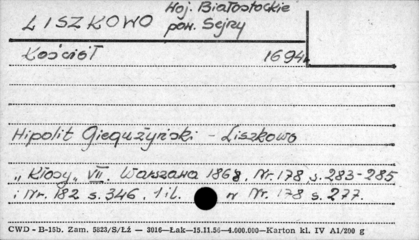 LISZKOWO Woj. Białostockie
pow. Sejny
Kościół 1694
Hipolit Giegużyński - Liszkowo
„Kłosy„ VII. Warszawa 1868, Nr. 178 s. 283-285
i Nr. 182 s. 346. 1 il. w Nr. 178 s. 277.
CWD - B-15b. Zam. 5823/S/Łź — 3016—Łak—15.11.56—4.000.000—Karton kl. IV A1/200 g